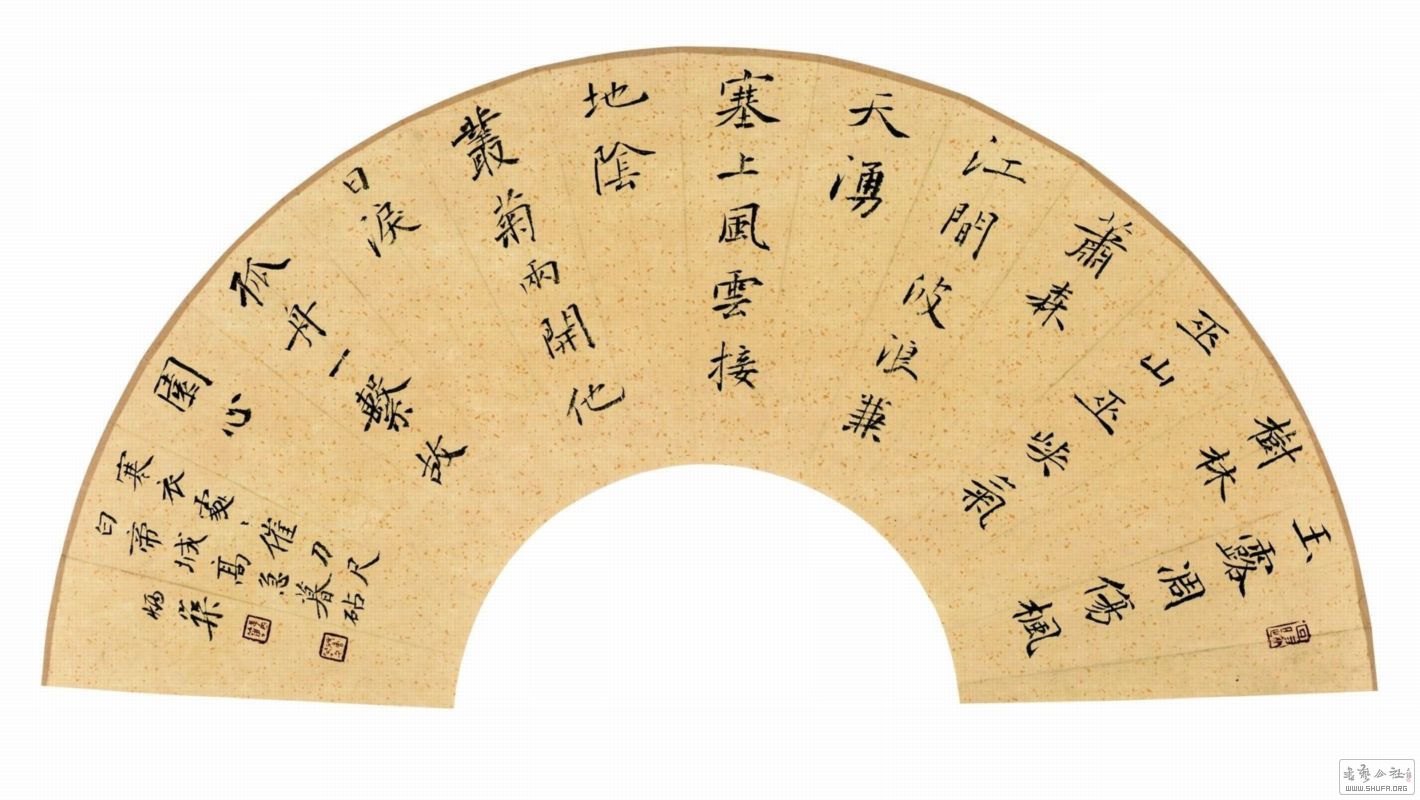 玉露凋傷楓
樹林
巫山巫峽氣
蕭森
江間波浪兼
天湧
塞上風雲接
地陰
叢菊兩開他
日淚
孤舟一繫故
園心
寒衣處〻催刀尺
白帝城高急暮砧
書藝公社
WWW.SHUFA.ORG